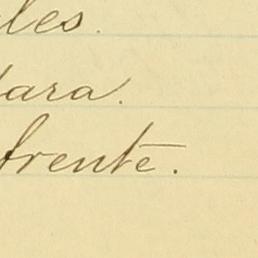 les.
tara.
frente.